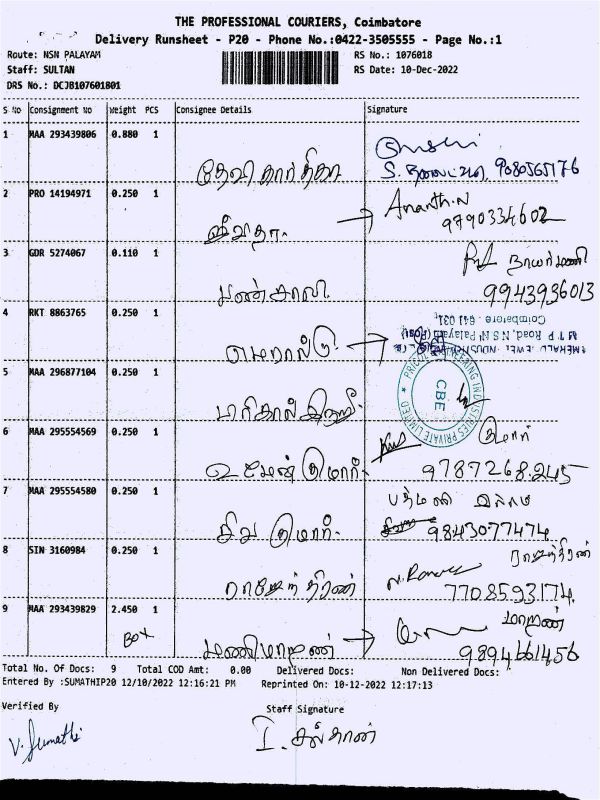 THE PROFESSIONAL COURIERS, Coimbatore
Delivery Runsheet - P20 - Phone No.:0422-3505555 - Page No.:1
Route: NSN PALAYAM
RS No.: 1076018
Staff: SULTAN
RS Date: 10-Dec-2022
DRS No.: DCJB107601801
S No Consignment No Weight PCS Consignee Details Signature
1 MAA 293439806 0.880 1
தேவி கார்த்திகா
S. 9080565176
2 PRO 14194971 0.250 1
ஜீவிதா.
Ananth.N
9790334602
3 GDR 5274067 0.110 1
9943936013
4 RKT 8863765 0.250 1
எமரால்டு
M T P Road, N S N Palayam (Post)
Coimbatore - 641 031
5 MAA 296877104 0.250 1
PRIVATE LIMITED
CBE
6 MAA 295554569 0.250 1
குமார்
9787268245
7 MAA 295554580 0.250 1
சிவ குமார்.
9843077474
8 SIN 3160984 0.250 1
ராஜேந்திரன்
7708593174
9 MAA 293439829 2.450 1
Box
மணிமாறன்
மாறன்
9894661456
Total No. Of Docs: 9 Total COD Amt: 0.00 Delivered Docs: Non Delivered Docs:
Entered By :SUMATHIP20 12/10/2022 12:16:21 PM Reprinted On: 10-12-2022 12:17:13
Verified By
Staff Signature
V. Sumathi
I. சுல்தான்